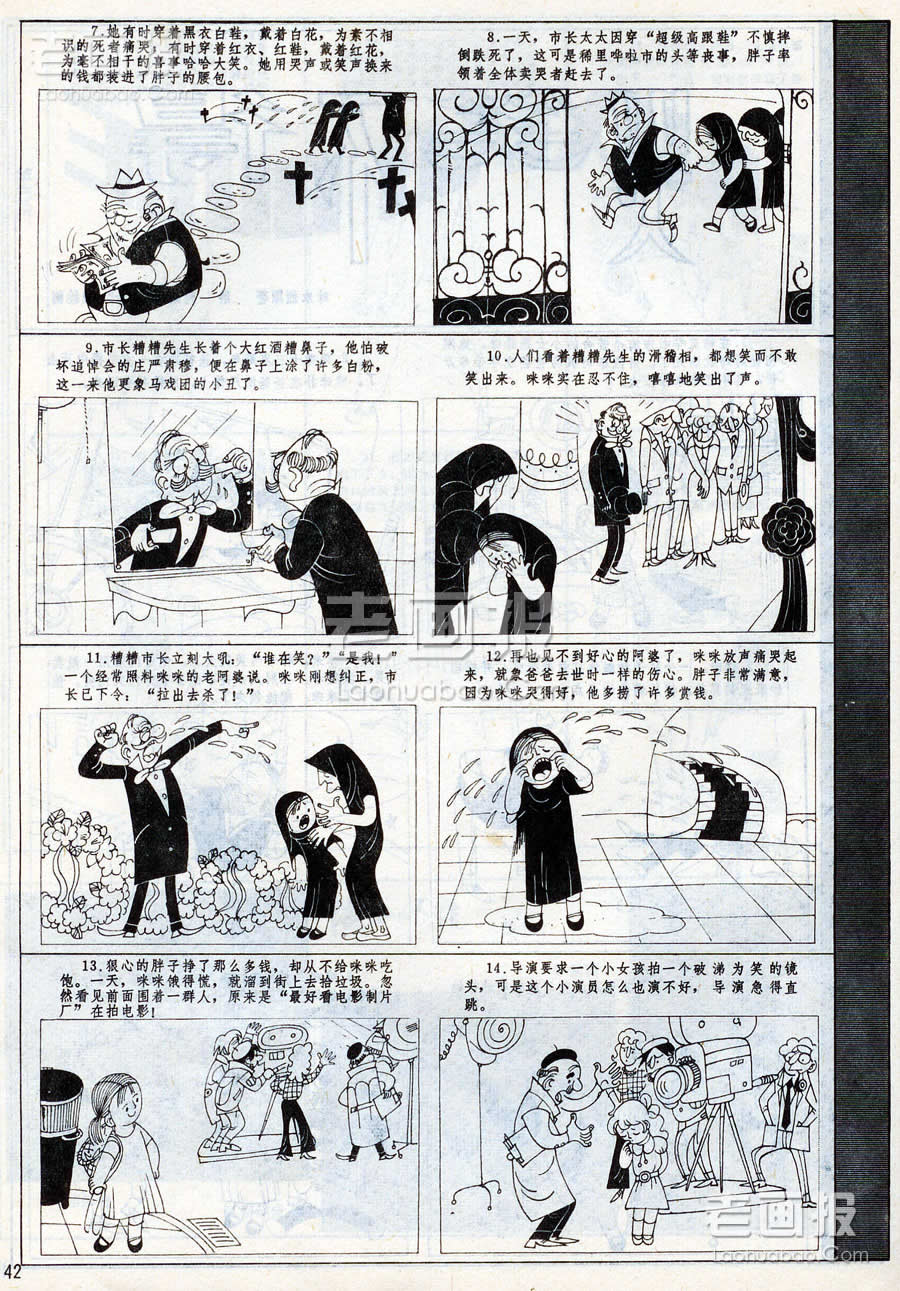 7.她有时穿着黑衣白鞋，戴着白花，为素不相
识的死者痛哭；有时穿着红衣、红鞋，戴着红花，
为毫不相干的喜事哈哈大笑。她用哭声或笑声换来
的钱都装进了胖子的腰包。
8.一天，市长太太因穿“超级高跟鞋”不慎摔
倒跌死了，这可是稀里哗啦市的头等丧事，胖子率
领着全体卖哭者赶去了。
9.市长糟糟先生长着个大红酒糟鼻子，他怕破
坏追悼会的庄严肃穆，便在鼻子上涂了许多白粉，
这一来他更象马戏团的小丑了。
10.人们看着糟糟先生的滑稽相，都想笑而不敢
笑出来。咪咪实在忍不住，嘻嘻地笑出了声。
11.糟糟市长立刻大吼：“谁在笑？”“是我！”
一个经常照料咪咪的老阿婆说。咪咪刚想纠正，市
长已下令：“拉出去杀了！”
12.再也见不到好心的阿婆了，咪咪放声痛哭起
来，就象爸爸去世时一样的伤心。胖子非常满意，
因为咪咪哭得好，他多捞了许多赏钱。
13.狠心的胖子挣了那么多钱，却从不给咪咪吃
饱。一天，咪咪饿得慌，就溜到街上去拾垃圾。忽
然看见前面围着一群人，原来是“最好看电影制片
厂”在拍电影！
14.导演要求一个小女孩拍一个破涕为笑的镜
头，可是这个小演员怎么也演不好，导演急得直
跳。
42
老画报
Laonuabao.Com
老画报
Laonuabao.Com
老画报
Laonuabao.Com